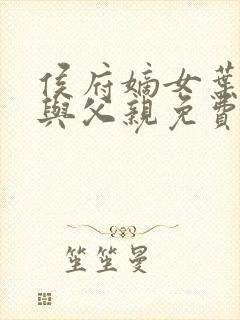 侯府嫡女葉
與父親免費
笙笙曼